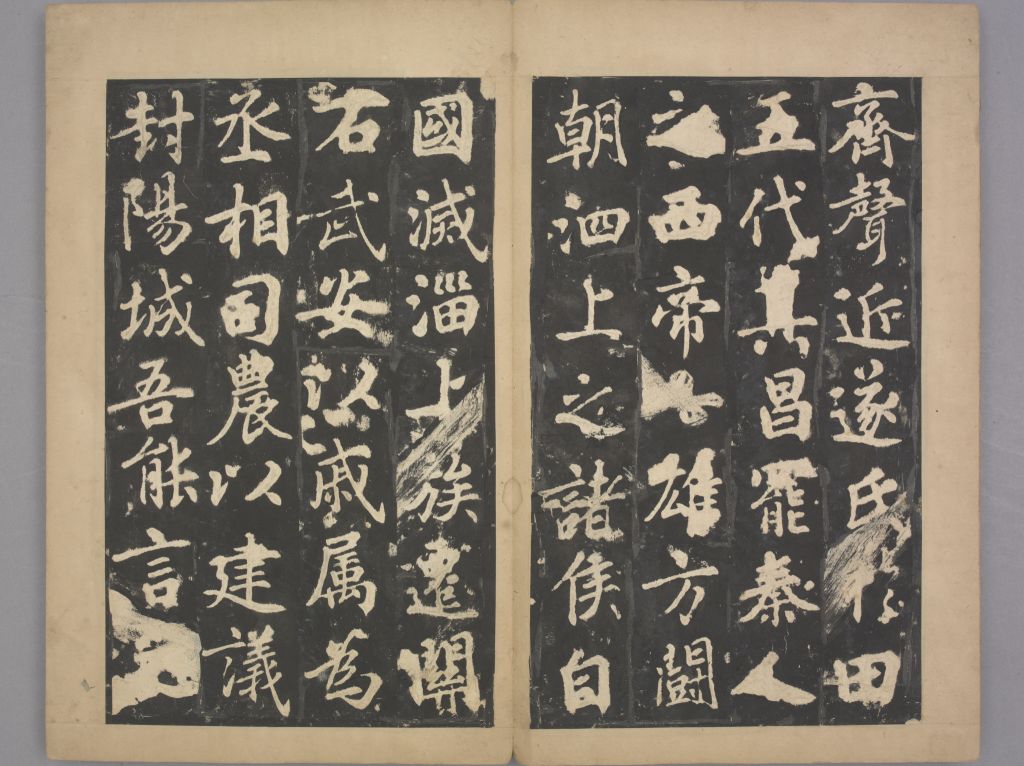 齊聲近遂氏於田
五代其昌罷秦人
之西帝七雄方鬪
朝泗上之諸侯自
國滅淄上族遷關
石武安以戚属為
丞相司農以建議
封陽城吾能言